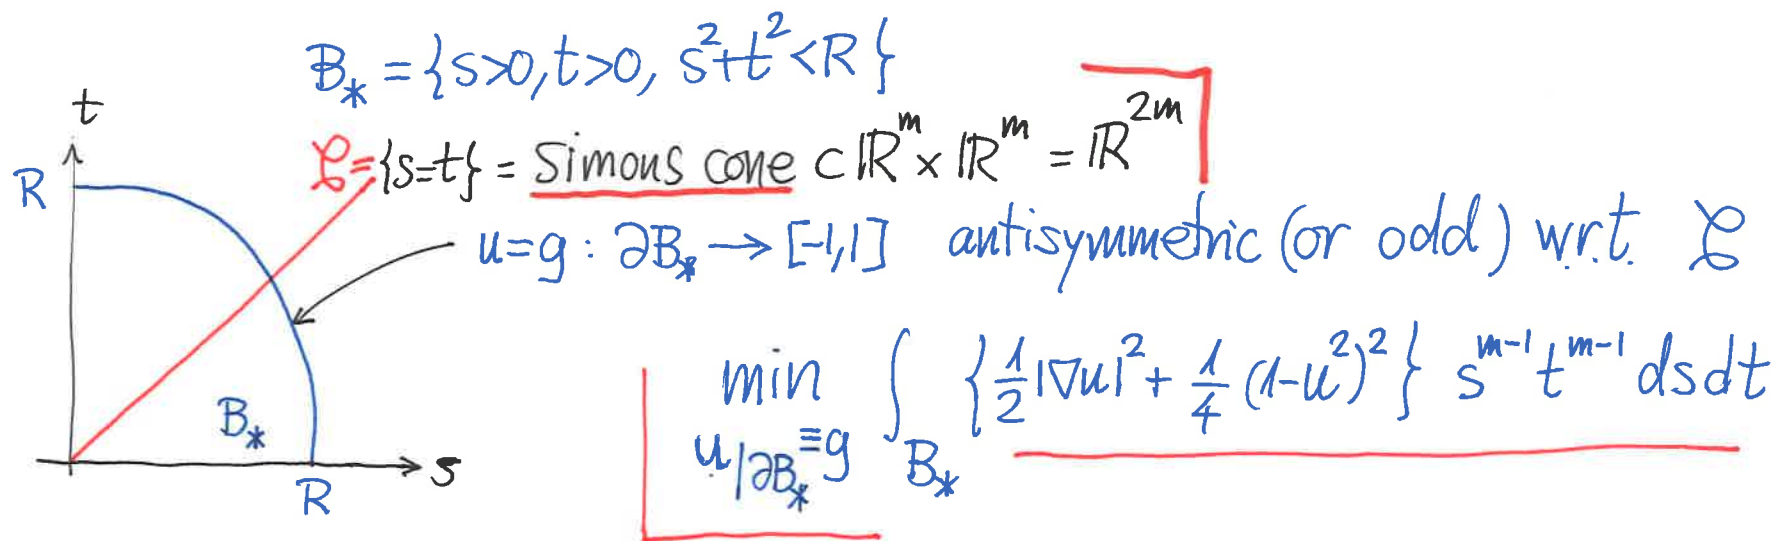 B_* = {s>0, t>0, s²+t²<R}
t
𝒞 = {s=t} = Simons cone ⊂ ℝ^m × ℝ^m = ℝ^{2m}
R
u=g : ∂B_* → [-1,1] antisymmetric (or odd) w.r.t. 𝒞
min_{u|∂B_* ≡ g} ∫_{B_*} {1/2 |∇u|² + 1/4 (1-u²)²} s^{m-1} t^{m-1} ds dt
B_*
s
R